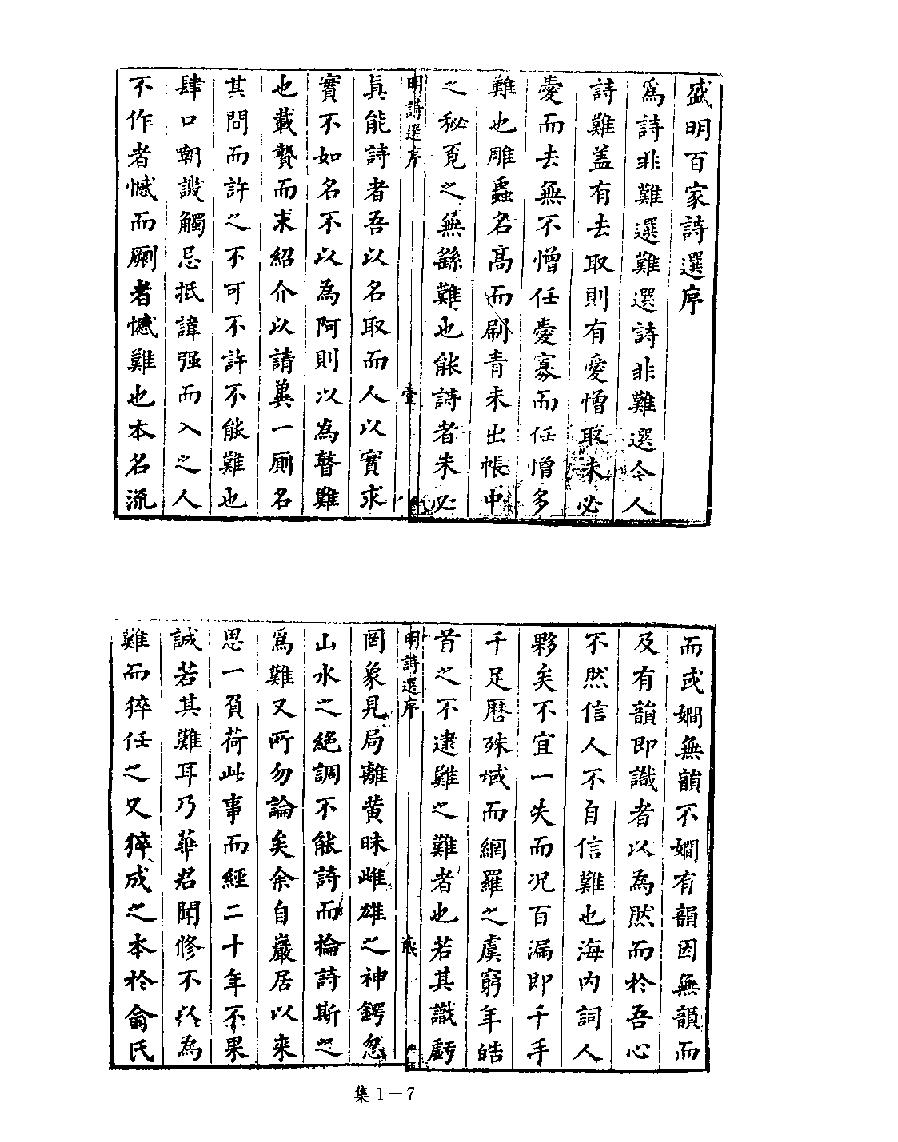 盛明百家詩選序
爲詩非難選難選詩非難選今人
詩難盖有去取則有愛憎取未必
愛而去無不憎任愛寡而任憎多
難也雕蟲名髙而刷青未出帳中
之秘覓之無繇難也能詩者未必
明詩選序 壹
真能詩者吾以名取而人以實求
實不如名不以為阿則以為瞽難
也載贄而求紹介以請兾一厠名
其問而許之不可不許不能難也
肆口朝譏觸忌抵諱强而入之人
不作者憾而厠者憾難也本名流
而或嫺無韻不嫺有韻因無韻而
及有韻即識者以為然而於吾心
不然信人不自信難也海内詞人
夥矣不宜一失而况百漏即千手
千足歴殊域而網羅之虞窮年皓
首之不逮難之難者也若其識虧
明詩選序 貳
罔象見局離黄昧雌雄之神鍔忽
山水之絶調不能詩而掄詩斯之
爲難又所勿論矣余自巖居以來
思一負荷此事而經二十年不果
誠若其難耳乃華君聞修不以為
難而猝任之又猝成之本於俞氏
集1－7